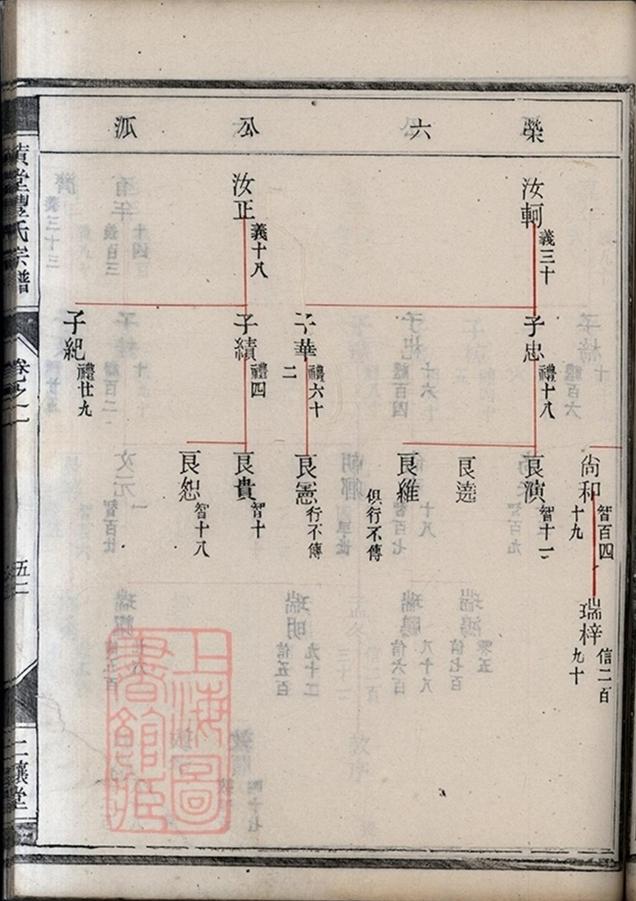 榮六公派
汝軻 義三十
汝正 義十八
子忠 禮十八
子華 禮六十二
子績 禮四
子紀 禮廿九
尙和 智百四十九
艮演 智十一
艮蕘
艮維
俱行不傳
艮憲 行不傳
艮貴 智十
艮恕 智十八
瑞梓 信二百九十
黃堂豐氏宗譜
卷之一
五
二讓堂
上海圖書館